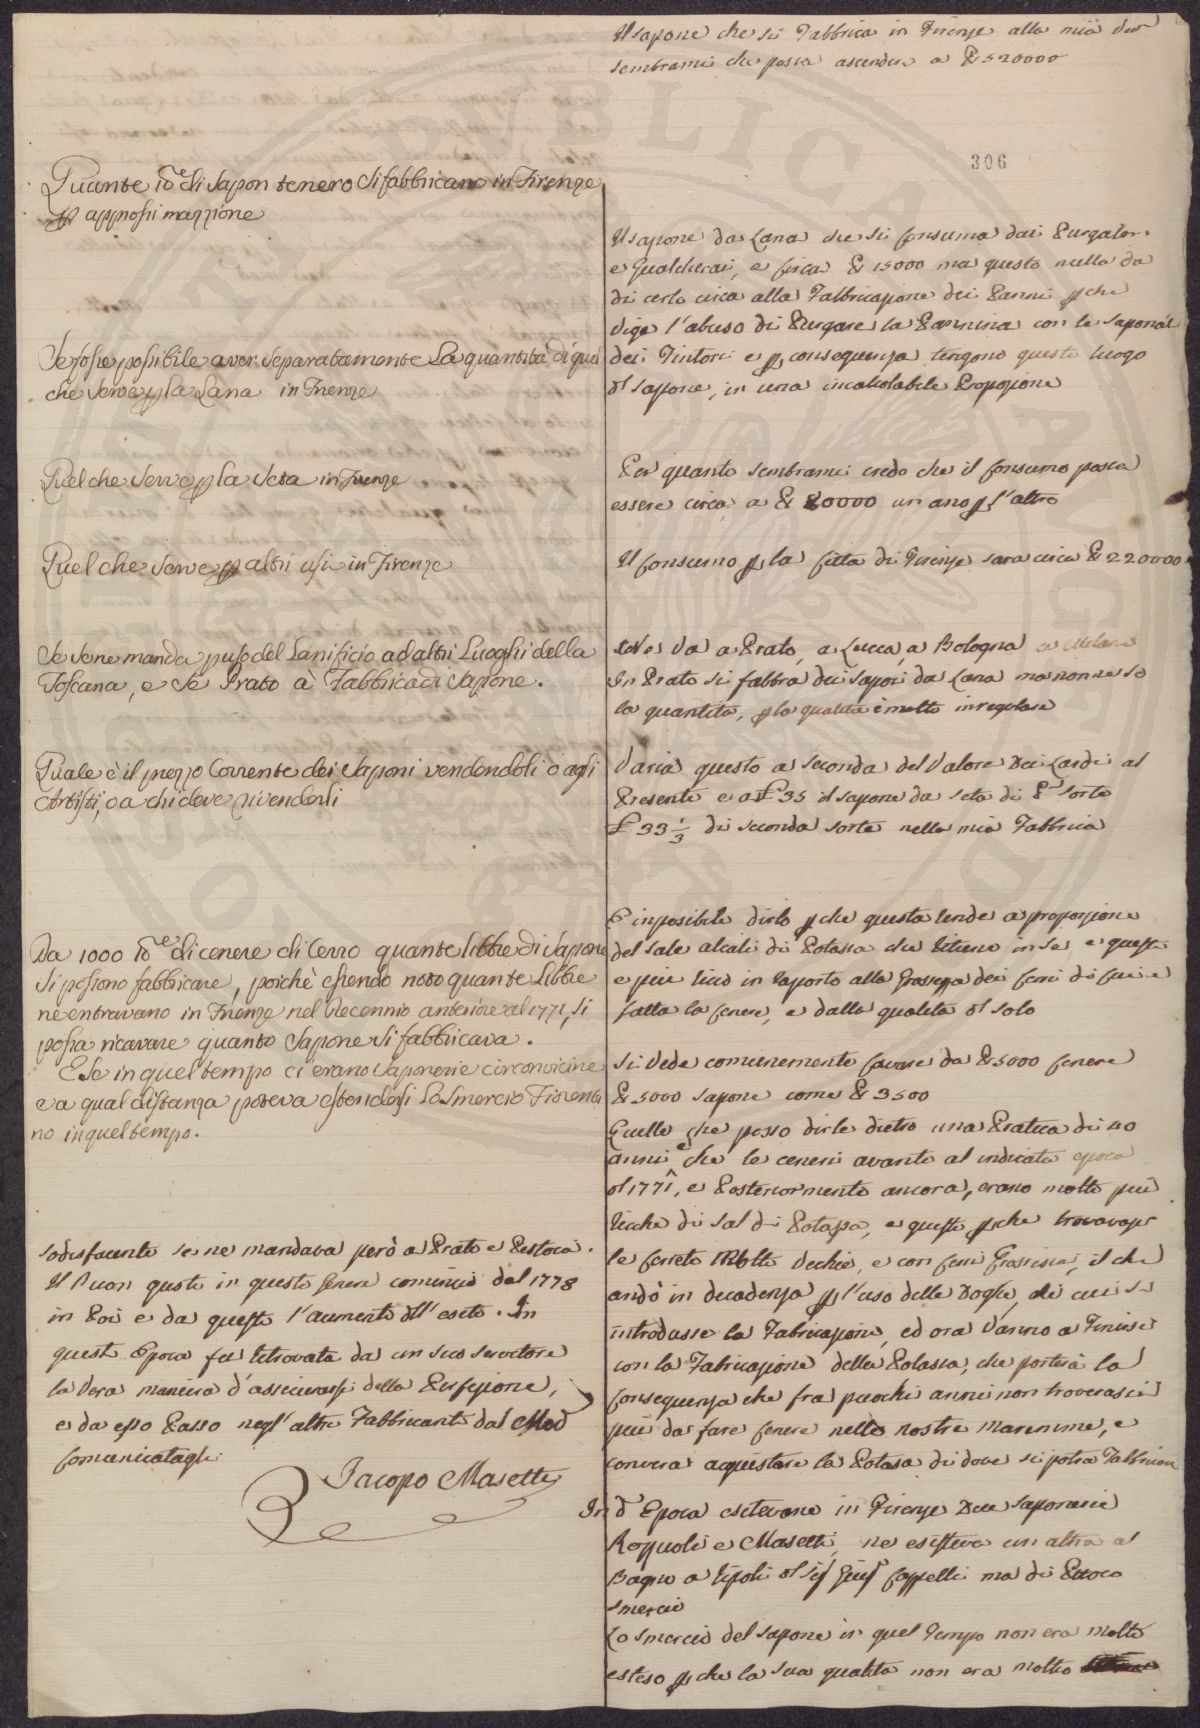 Il sapone che si Fabbrica in Firenze alla mia
sembrami che possa ascendere a 520000
306
Quante di Sapon tenero si fabbricano in Firenze
approssimazzione
Il sapone da Lana che si consuma dai Purgatori
e Gualcherai, e circa 15000 ma questo nulla da
di certo circa alla Fabbricazione dei Panni che
vige l'abuso di Purgare la Pannina con le saponate
dei Tintori e conseguenza tengono queste luogo
sapone, in una incalcolabile Proporzione
Se fosse possibile aver separatamente La quantità di quel
che serve la Lana in Firenze
Quel che serve la Seta in Firenze
Per quanto sembrami credo che il consumo possa
essere circa a 80000 un ano l'altro
Quel che serve altri usi in Firenze
Il consumo la Città di Firenze sara circa 220000
Se se ne manda uso del Lanificio ad altri Luoghi della
Toscana, e se Prato à Fabbrica di Sapone.
va a Prato, a Lucca, a Bologna a Milano
In Prato si fabbra dei saponi da Lana ma non ne so
la quantita, la qualità è molto inregolare
Quale è il prezzo Corrente dei Saponi vendendoli o agli
Artisti, o a chi deve rivenderli
Varia questo a seconda del Valore dei Lardi al
Presente e a £ 35 il sapone da seta di sorte
£ 33 1/3 di seconda sorte nella mia Fabbrica
Da 1000 di cenere di Cerro quante libbre di Sapone
si possono fabbricare, poichè essendo noto quante Libbre
ne entravano in Firenze nel Decennio anteriore al 1771, si
possa ricavare quanto Sapone si fabbricava.
E Se in quel tempo ci erano Saponerie circonvicine
e a qual distanza poteva estendersi Lo Smercio Fiorenti
no in quel tempo.
E inposibile dirlo che questa rende a proporzione
del sale alcali di Potassa che ritiene in se, e questi
e piu ricco in raporto alla Grossezza dei
fatta la cenere, e dalla qualita solo
Si vede comunemente cavare da 5000 cenere
5000 sapone come 3500
Quello che posso dirle dietro una Pratica di 40
anni e che le ceneri avante al indicata epoca
1771, e Posteriormente ancora, erano molto piu
ricche di sal di Potassa, e questi che trovavasi
le Molte Vechie, e con
andò in decadenza l'uso delle Doghe, di cui si
introdusse la Fabricazione, ed ora vanno a Finirsi
con la Fabricazione della Potassa, che porterà la
consequenza che fra puochi anni non troverassi
più da fare cenere nelle nostre maremme, e
converra acquistare la Potasa di dove si potra Fabbricare
In Epoca esitevano in Firenze due saponerie
e Masetti, ne esisteva un altra al
Bagno a Ripoli Cappelli ma di Puoco
smercio
Lo smercio del sapone in quel Tempo non era molto
esteso che la sua qualita non era molto
sodisfacente se ne mandava però a Prato e Pistoia.
Il Buon gusto in questo genere cominciò dal 1778
in Poi e da questo l'aumento dell'esito. In
questa Epoca fu ritrovata da un suo servitore
la vera maniera d'assicurarsi della Perfezione,
e da esso Passo negl'altri Fabbricanti dal Mod
comunicatagli
Jacopo Masetti